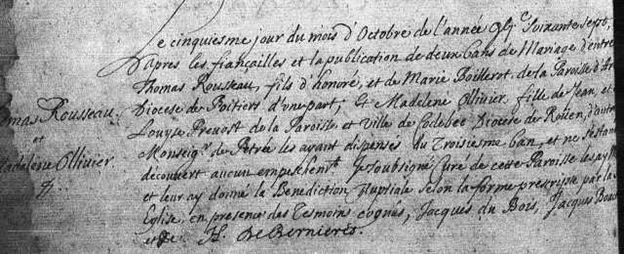 Le cinquiesme jour du mois d'Octobre de l'année soixante sept,
d'apres les fiançailles et la publication de deux bans de Mariage d'entre
Thomas Rousseau, fils d'honoré, et de Marie Boillerot, de la Paroisse d'Ar
Diocese de Poitiers d'une part; Et Madelene Ollivier fille de Jean et
Louyse Prevost de la Paroisse et Ville de Codebec Diocese de Roüen, d'autre
omas Rousseau
et
adelene Ollivier
Monseigr. de Petrée les ayant dispensés du Troisiesme ban, et ne s'estant
decouvert aucun empeschemt. Je soubsigné Curé de cette Paroisse les ay
et leur ay donné la Benediction Nuptiale selon la forme prescripte par la
Eglise, en presence des Tesmoins cognûs, Jacques du Bois, Jacques
et de H. de Bernieres.